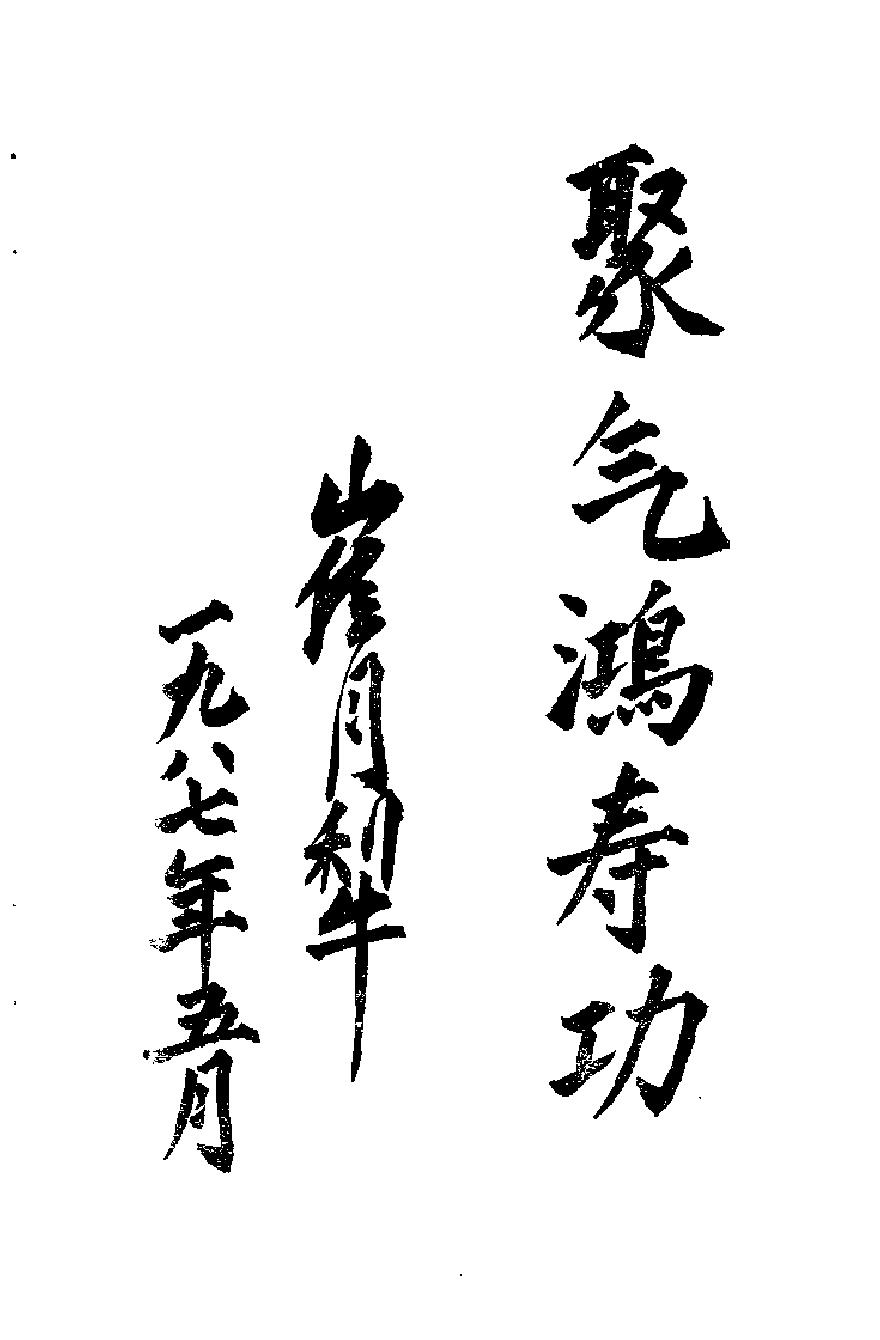 聚气鸿寿功
崔月犁
一九八七年五月